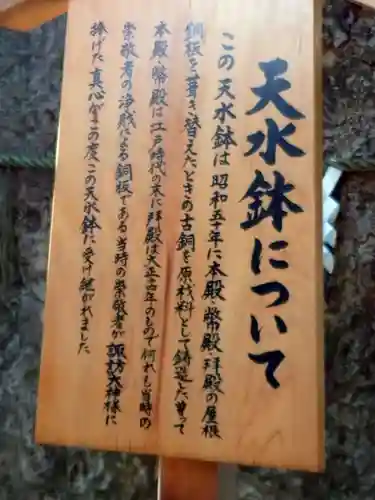 天水鉢について
この天水鉢は昭和五十年に、本殿・幣殿・拝殿の屋根
銅板を葺き替えたときの古銅を原材料として鋳造した。
本殿・幣殿は江戸時代の末に拝殿は大正十四年のもので何れも当時の
崇敬者の浄財による銅板である当時の崇敬者が諏訪大神様に
捧げた真心がこの度この天水鉢に受け継がれました